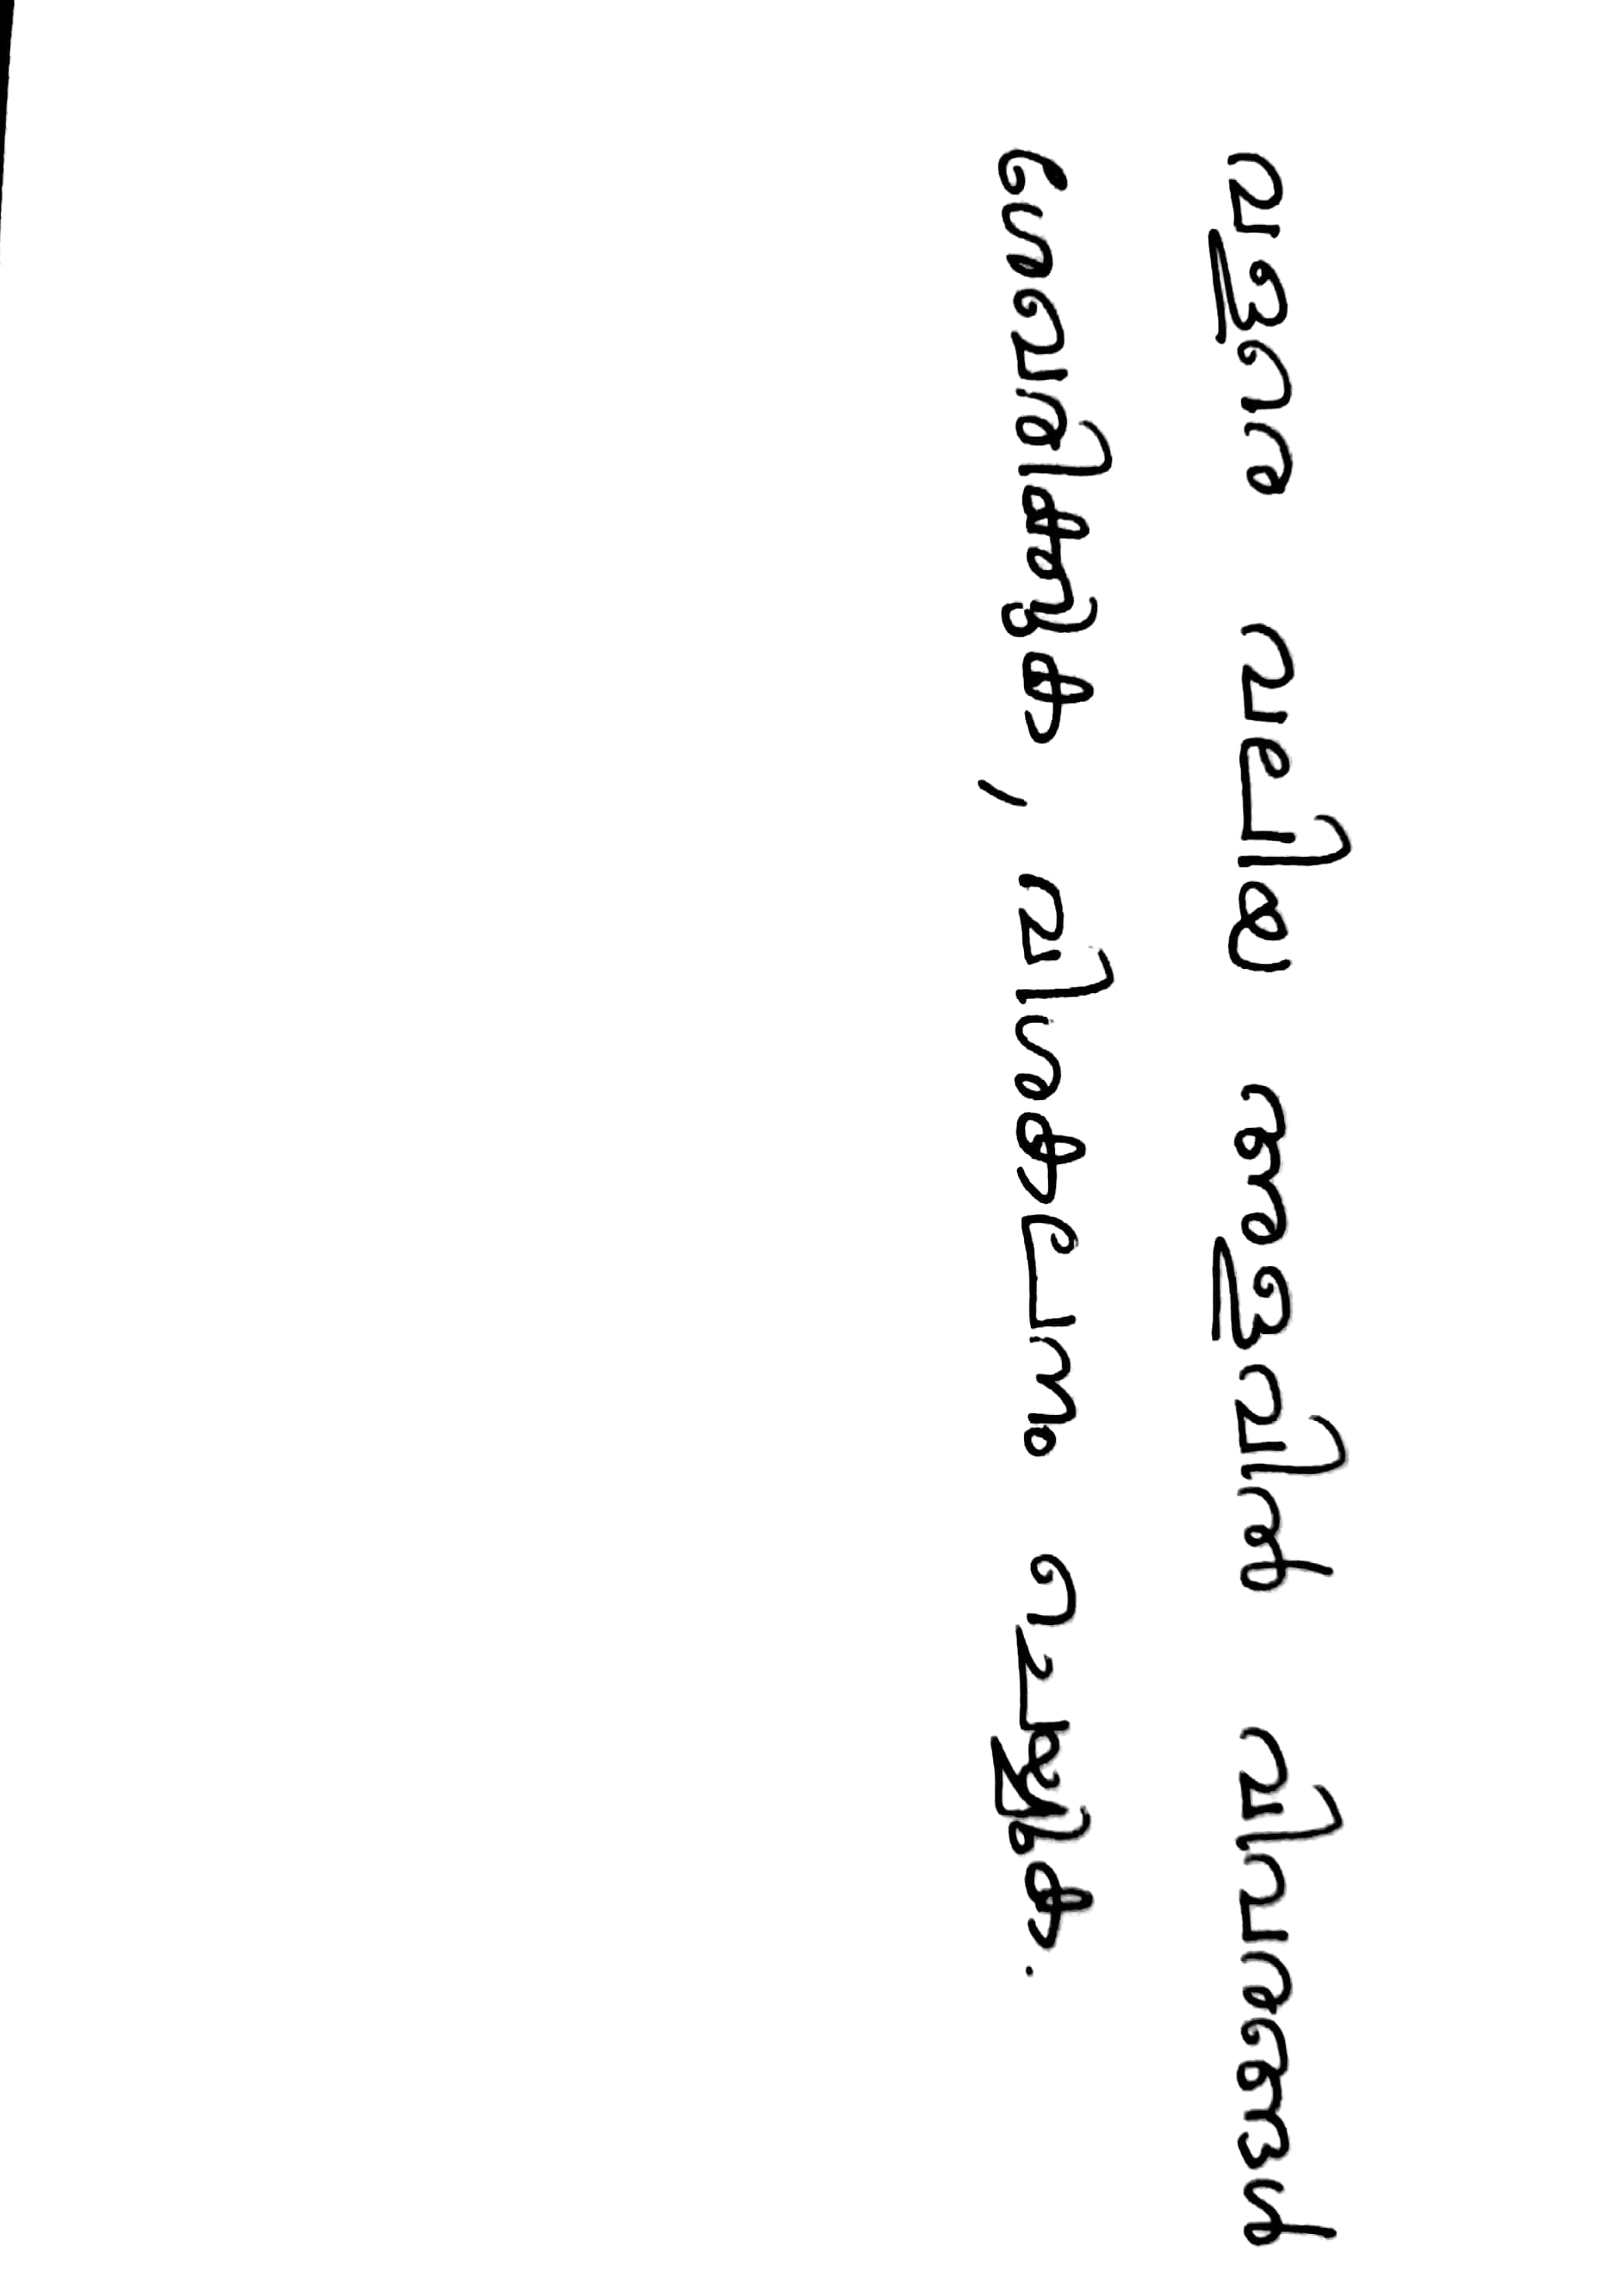 വളരെ വലിയ അളവിൽ വിവരങ്ങൾ
ശേഖരിക്കുക, വിശകലനം ചെയ്യുക.